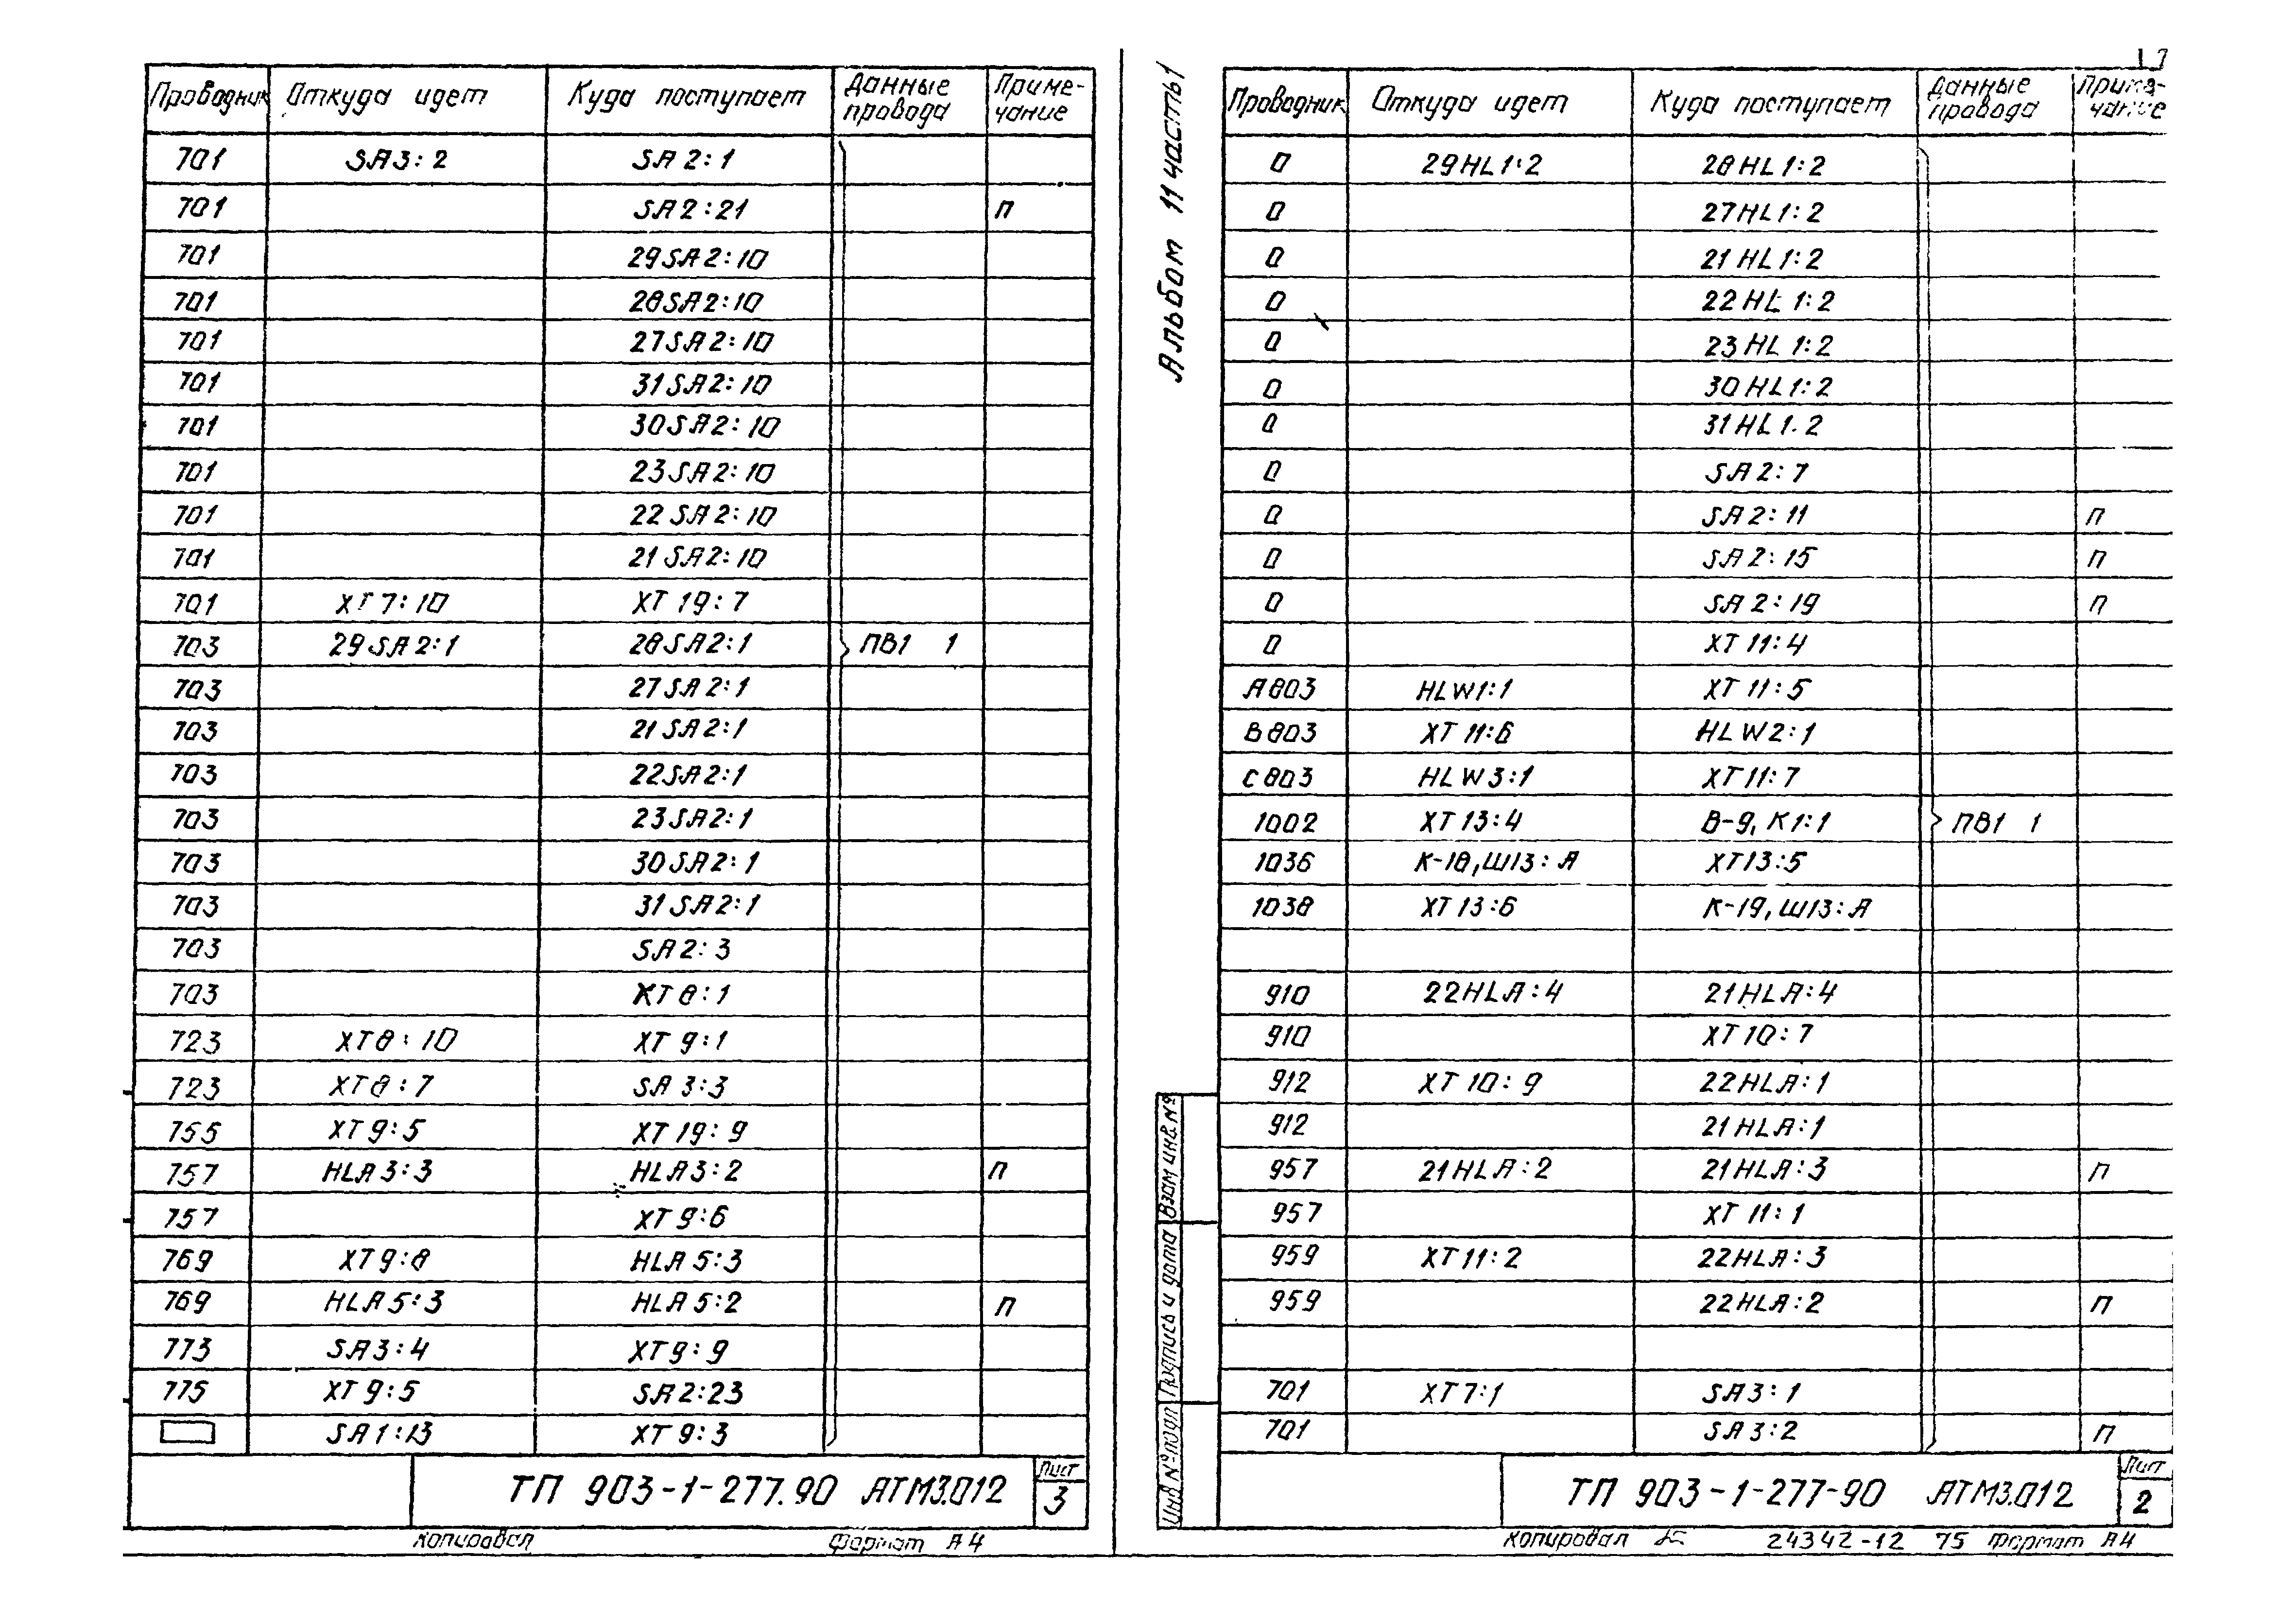 Проводник Откуда идет Куда поступает Данные провода Примечание
701 SA3:2 SA2:1
701 SA2:21 П
701 29SA2:10
701 28SA2:10
701 27SA2:10
701 31SA2:10
701 30SA2:10
701 23SA2:10
701 22SA2:10
701 21SA2:10
701 XT7:10 XT19:7
703 29SA2:1 28SA2:1 ПВ1 1
703 27SA2:1
703 21SA2:1
703 22SA2:1
703 23SA2:1
703 30SA2:1
703 31SA2:1
703 SA2:3
703 XT8:1
723 XT8:10 XT9:1
723 XT8:7 SA3:3
755 XT9:5 XT19:9
757 HLA3:3 HLA3:2 П
757 XT9:6
769 XT9:8 HLA5:3
769 HLA5:3 HLA5:2 П
773 SA3:4 XT9:9
775 XT9:5 SA2:23
SA1:13 XT9:3
ТП 903-1-277.90 АТМ3.012
Лист
3
Копировал Формат А4
Альбом 11 часть 1
17
Проводник Откуда идет Куда поступает Данные провода Примечание
0 29HL1:2 28HL1:2
0 27HL1:2
0 21HL1:2
0 22HL1:2
0 23HL1:2
0 30HL1:2
0 31HL1.2
0 SA2:7
0 SA2:11 П
0 SA2:15 П
0 SA2:19 П
0 XT11:4
A803 HLW1:1 XT11:5
B803 XT11:6 HLW2:1
C803 HLW3:1 XT11:7
1002 XT13:4 В-9, К1:1 ПВ1 1
1036 К-18, Ш13:А XT13:5
1038 XT13:6 К-19, Ш13:А
910 22HLA:4 21HLA:4
910 XT10:7
912 XT10:9 22HLA:1
912 21HLA:1
957 21HLA:2 21HLA:3 П
957 XT11:1
959 XT11:2 22HLA:3
959 22HLA:2 П
701 XT7:1 SA3:1
701 SA3:2 П
Взам инв. №
Подпись и дата
Инв № подл
ТП 903-1-277-90 АТМ3.012
Лист
2
Копировал 24342-12 75 Формат А4